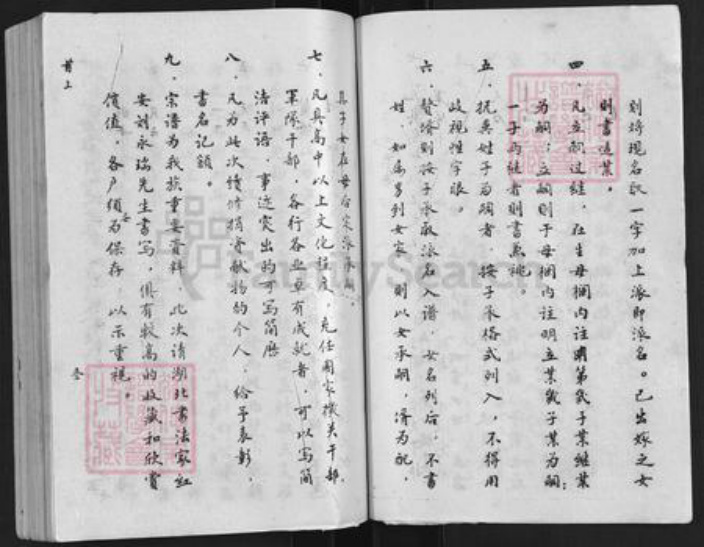 则将现名取一字加上派即派名。已出嫁之女
则书适某。
四、凡立嗣过继，在生母栏内注明第几子某继某
为嗣；立嗣则于母栏内注明立某几子某为嗣；
一子两继者则书兼祧。
五、抚异姓子为嗣者，按子承格式列入，不得用
歧视性字眼。
六、赘婿则按子承取派名入谱，女名列后，不书
姓，如属多列女家，则以女承嗣，婿为配，
其子女在母名宋派
七、凡具高中以上文化程度，充任国家机关干部、
军队干部，各行各业卓有成就者，可以写简
洁评语，事迹突出的可写简历
八、凡为此次续修捐资献物的个人，给予表彰，
书名记额。
九、宗谱为我族重要资料，此次请湖北书法家红
安刘永瑞先生书写，俱有较高的收藏和欣赏
价值，各户须为保存，以示重视。
首上
叁
FamilySearch